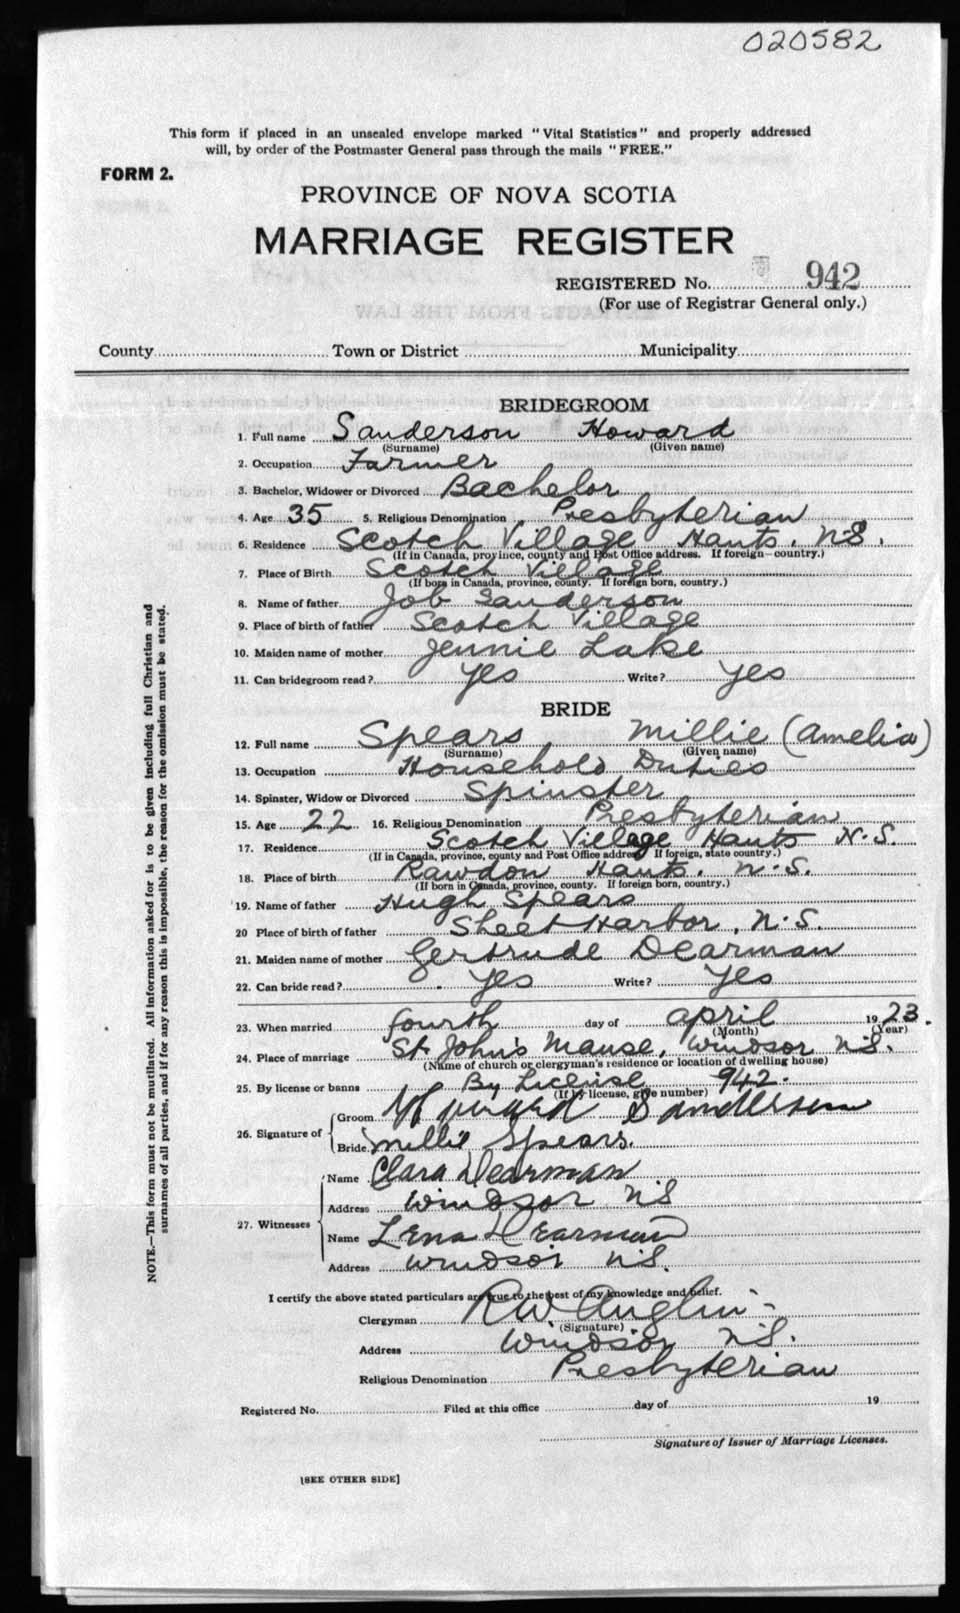 020582
This form if placed in an unsealed envelope marked "Vital Statistics" and properly addressed
will, by order of the Postmaster General pass through the mails "FREE."
FORM 2.
PROVINCE OF NOVA SCOTIA
MARRIAGE REGISTER
REGISTERED No. 942
(For use of Registrar General only.)
County Town or District Municipality
BRIDEGROOM
1. Full name Sanderson Howard
(Surname) (Given name)
2. Occupation Farmer
3. Bachelor, Widower or Divorced Bachelor
4. Age 35 5. Religious Denomination Presbyterian
6. Residence Scotch Village Hants. N.S.
(If in Canada, province, county and Post Office address. If foreign—country.)
7. Place of Birth Scotch Village
(If born in Canada, province, county. If foreign born, country.)
8. Name of father Job Sanderson
9. Place of birth of father Scotch Village
10. Maiden name of mother Jennie Lake
11. Can bridegroom read? Yes Write? Yes
BRIDE
12. Full name Spears Millie (Amelia)
(Surname) (Given name)
13. Occupation Household Duties
14. Spinster, Widow or Divorced Spinster
15. Age 22 16. Religious Denomination Presbyterian
17. Residence Scotch Village Hants N.S.
(If in Canada, province, county and Post Office address If foreign, state country.)
18. Place of birth Rawdon Hants. N.S.
(If born in Canada, province, county. If foreign born, country.)
19. Name of father Hugh Spears
20 Place of birth of father Sheet Harbor, N.S.
21. Maiden name of mother Gertrude Dearman
22. Can bride read? Yes Write? Yes
23. When married fourth day of April 1923.
(Month) (Year)
24. Place of marriage St John's Manse, Windsor N.S.
(Name of church or clergyman's residence or location of dwelling house)
25. By license or banns By License 942.
(If by license, give number)
26. Signature of Groom Howard Sanderson
Bride Millie Spears.
27. Witnesses Name Clara Dearman
Address Windsor NS
Name Lena Dearman
Address Windsor N.S.
I certify the above stated particulars are true to the best of my knowledge and belief.
Clergyman RW Anglin
(Signature)
Address Windsor N.S.
Religious Denomination Presbyterian
Registered No. Filed at this office day of 19
Signature of Issuer of Marriage Licenses.
[SEE OTHER SIDE]
NOTE.—This form must not be mutilated. All information asked for is to be given including full Christian and
surnames of all parties, and if for any reason this is impossible, the reason for the omission must be stated.